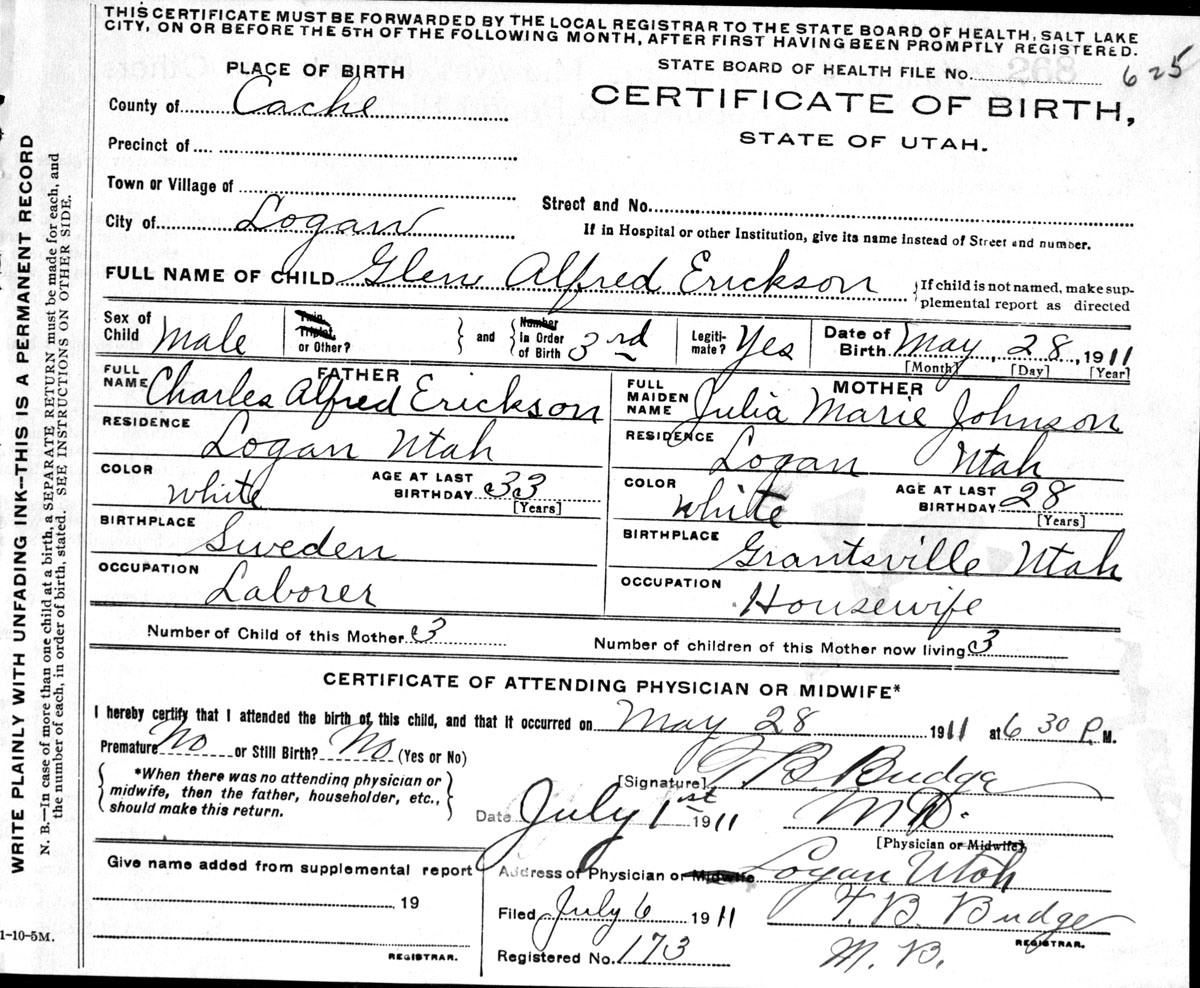 THIS CERTIFICATE MUST BE FORWARDED BY THE LOCAL REGISTRAR TO THE STATE BOARD OF HEALTH, SALT LAKE
CITY, ON OR BEFORE THE 5TH OF THE FOLLOWING MONTH, AFTER FIRST HAVING BEEN PROMPTLY REGISTERED.
STATE BOARD OF HEALTH FILE No. 625
PLACE OF BIRTH
CERTIFICATE OF BIRTH,
STATE OF UTAH.
County of Cache
Precinct of
Town or Village of
Street and No.
City of Logan
If in Hospital or other Institution, give its name instead of Street and number.
FULL NAME OF CHILD Glen Alfred Erickson
If child is not named, make sup-
plemental report as directed
Sex of Child Male
Twin, Triplet, or Other?
and
Number in Order of Birth 3rd
Legiti-mate? Yes
Date of Birth May, 28, 1911
[Month] [Day] [Year]
FATHER
FULL NAME Charles Alfred Erickson
RESIDENCE Logan Utah
COLOR White AGE AT LAST BIRTHDAY 33
[Years]
BIRTHPLACE Sweden
OCCUPATION Laborer
MOTHER
FULL MAIDEN NAME Julia Marie Johnson
RESIDENCE Logan Utah
COLOR White AGE AT LAST BIRTHDAY 28
[Years]
BIRTHPLACE Grantsville Utah
OCCUPATION Housewife
Number of Child of this Mother 3 Number of children of this Mother now living 3
CERTIFICATE OF ATTENDING PHYSICIAN OR MIDWIFE*
I hereby certify that I attended the birth of this child, and that it occurred on May 28 1911 at 6 30 P.M.
Premature No or Still Birth? No (Yes or No)
*When there was no attending physician or
midwife, then the father, householder, etc.,
should make this return.
[Signature] T B Budge
Date July 1st 1911 M D.
[Physician or Midwife]
Give name added from supplemental report
19
REGISTRAR.
Address of Physician or Midwife Logan Utah
Filed July 6 1911 T. B. Budge
REGISTRAR.
Registered No. 173 M. D.
WRITE PLAINLY WITH UNFADING INK—THIS IS A PERMANENT RECORD
N. B.—In case of more than one child at a birth, a SEPARATE RETURN must be made for each, and
the number of each, in order of birth, stated. SEE INSTRUCTIONS ON OTHER SIDE.
1-10-5M.